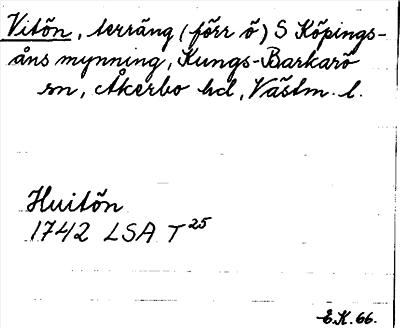 Vitön, terräng (förr ö) S Köpings-
åns mynning, Kungs-Barkarö
sn, Åkerbo hd, Västm. l.
Huitön
1742 LSA T 25
E.K. 66.